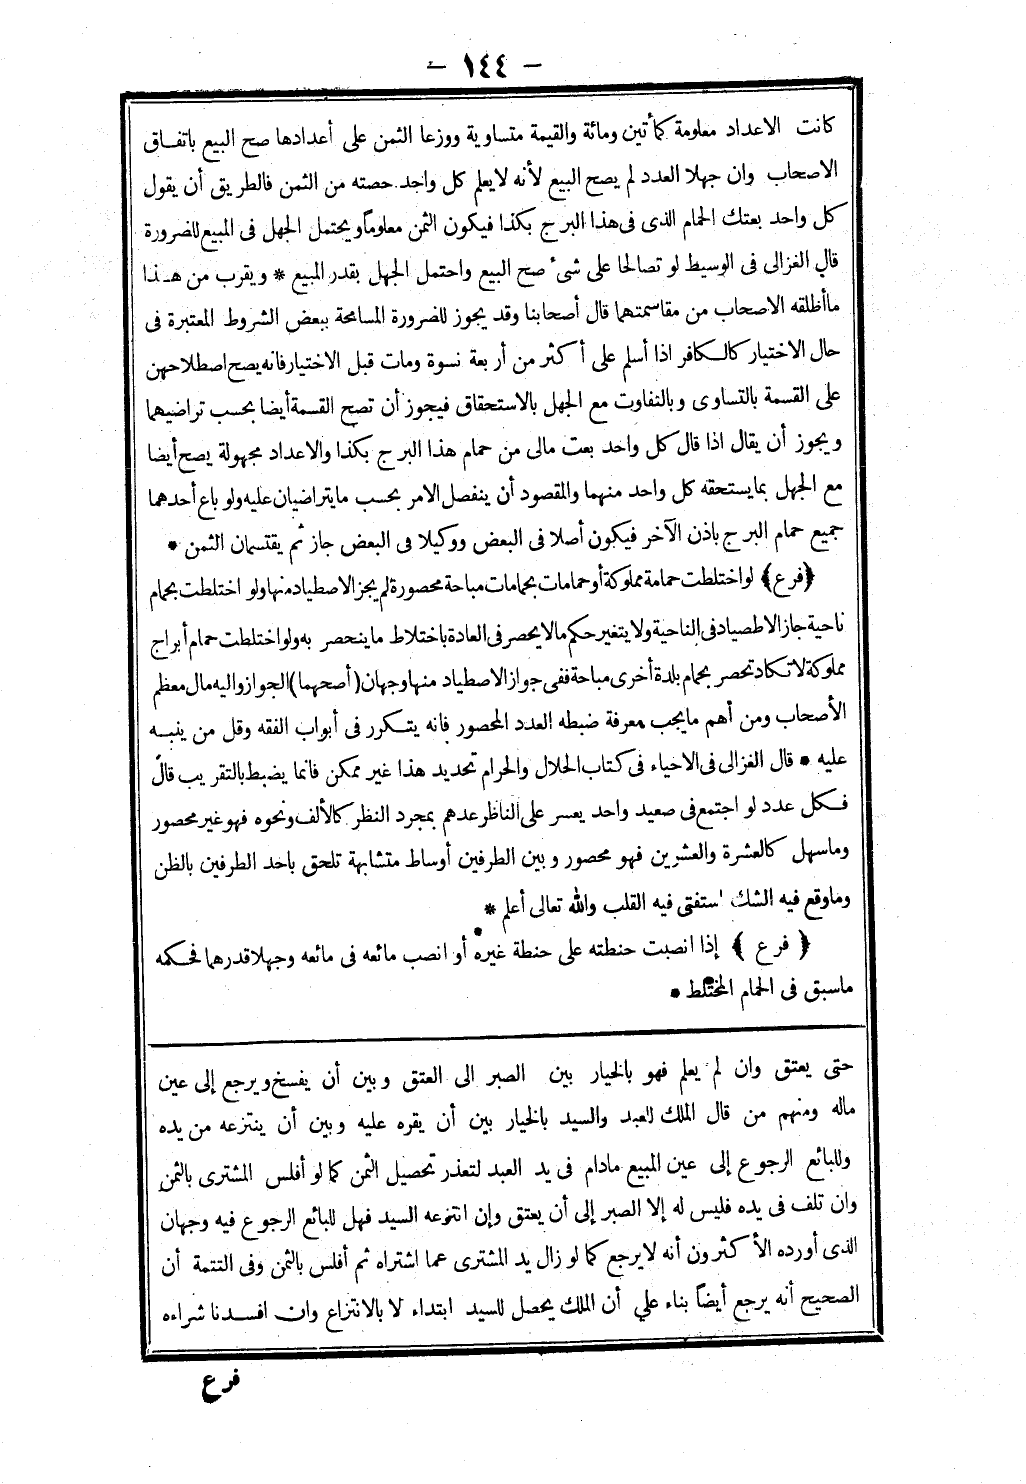 – ١٤٤ –
كانت الاعداد معلومة كمأتين ومائة والقيمة متساوية ووزعا الثمن على أعدادها صح البيع باتفاق
الاصحاب وان جهلا العدد لم يصح البيع لأنه لايعلم كل واحد حصته من الثمن فالطريق أن يقول
كل واحد بعتك الحمام الذى فى هذا البرج بكذا فيكون الثمن معلوماً ويحتمل الجهل فى المبيع للضرورة
قال الغزالى فى الوسيط لو تصالحا على شىء صح البيع واحتمل الجهل بقدر المبيع * ويقرب من هـذا
ماأطلقه الاصحاب من مقاسمتهما قال أصحابنا وقد يجوز للضرورة المسامحة ببعض الشروط المعتبرة فى
حال الاختيار كالكافر اذا أسلم على أكثر من أربعة نسوة ومات قبل الاختيار فانه يصح اصطلاحهن
على القسمة بالتساوى وبالتفاوت مع الجهل بالاستحقاق فيجوز أن تصح القسمة أيضا بحسب تراضيهما
ويجوز أن يقال اذا قال كل واحد بعت مالى من حمام هذا البرج بكذا والاعداد مجهولة يصح أيضا
مع الجهل بما يستحقه كل واحد منهما والمقصود أن ينفصل الامر بحسب مايتراضيان عليه ولو باع أحدهما
جميع حمام البرج باذن الآخر فيكون أصلا فى البعض ووكيلا فى البعض جاز ثم يقتسمان الثمن *
﴿فرع﴾ لو اختلطت حمامة مملوكة أو حمامات بحمامات مباحة محصورة لم يجز الاصطياد منها ولو اختلطت بحمام
ناحية جاز الاطصياد فى الناحية ولا يتغير حكم مالا يحصر فى العادة باختلاط ما ينحصر به ولو اختلطت حمام أبراج
مملوكة لا تكاد تحصر بحمام بلدة أخرى مباحة ففى جواز الاصطياد منها وجهان (أصحهما) الجواز واليه مال معظم
الأصحاب ومن أهم مايجب معرفة ضبطه العدد المحصور فانه يتكرر فى أبواب الفقه وقل من ينبـه
عليه * قال الغزالى فى الاحياء فى كتاب الحلال والحرام تحديد هذا غير ممكن فانما يضبط بالتقريب قال
فـكل عدد لو اجتمع فى صعيد واحد يعسر على الناظر عدهم بمجرد النظر كالألف ونحوه فهو غير محصور
وماسهل كالعشرة والعشرين فهو محصور وبين الطرفين أوساط متشابهة تلحق باحد الطرفين بالظن
وماوقع فيه الشك استفتى فيه القلب والله تعالى أعلم *
﴿ فرع ﴾ إذا انصبت حنطته على حنطة غيره أو انصب مائعه فى مائعه وجهلا قدرهما فحكمه
ماسبق فى الحمام المختلط *
حتى يعتق وان لم يعلم فهو بالخيار بين الصبر الى العتق وبين أن يفسخ ويرجع إلى عين
ماله ومنهم من قال الملك للعبد والسيد بالخيار بين أن يقره عليه وبين أن ينتزعه من يده
وللبائع الرجوع إلى عين المبيع مادام فى يد العبد لتعذر تحصيل الثمن كما لو أفلس المشترى بالثمن
وان تلف فى يده فليس له إلا الصبر إلى أن يعتق وإن انتزعه السيد فهل للبائع الرجوع فيه وجهان
الذى أورده الأكثرون أنه لايرجع كما لو زال يد المشترى عما اشتراه ثم أفلس بالثمن وفى التتمة أن
الصحيح أنه يرجع أيضاً بناء على أن الملك يحصل للسيد ابتداء لا بالانتزاع وان افسدنا شراءه
فرع